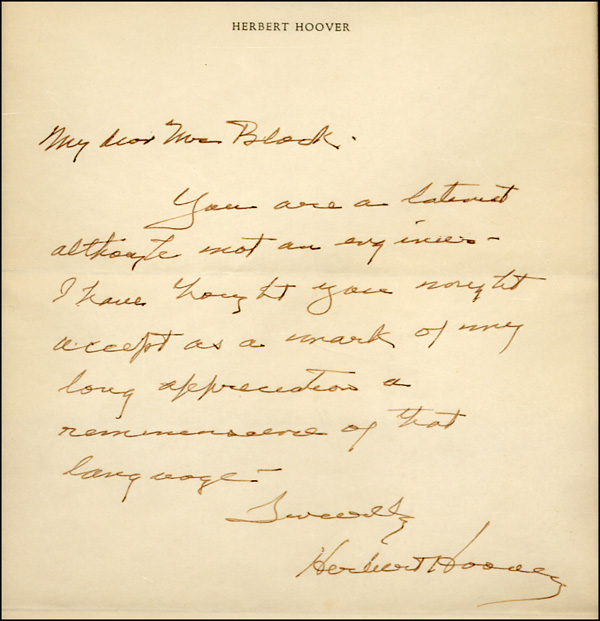 HERBERT HOOVER
My dear Mr Block.
You are a latinist
although not an engineer-
I have thought you might
accept as a mark of my
long appreciation a
reminiscence of that
language-
Sincerely
Herbert Hoover